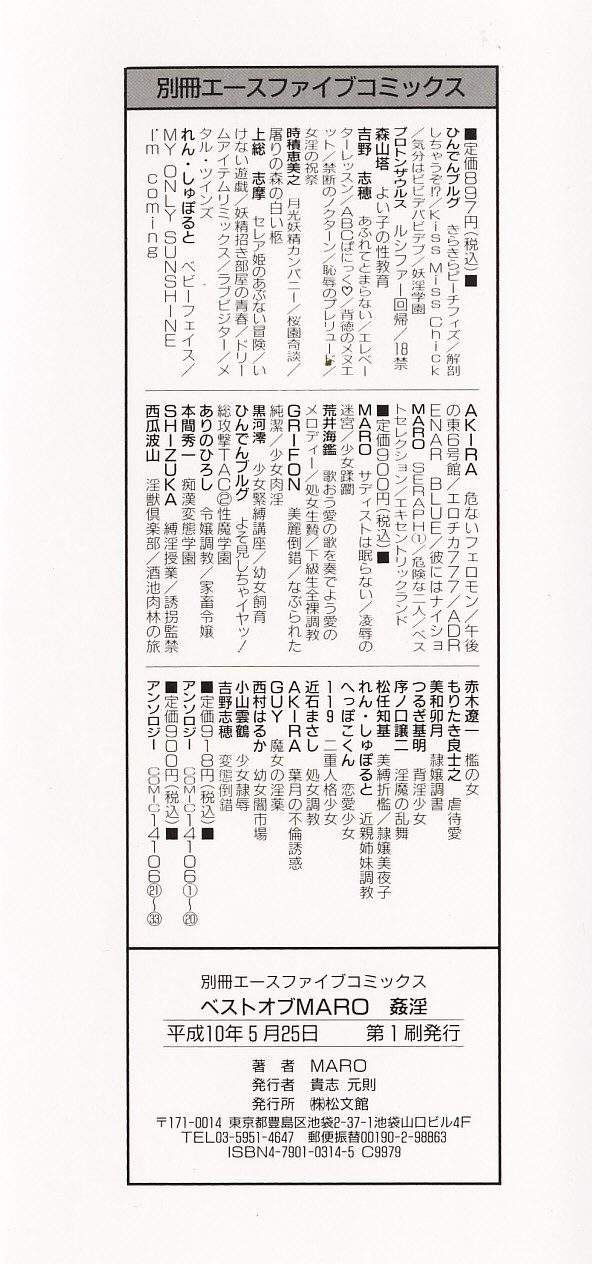 別冊エースファイブコミックス
■定価897円(税込)■
ひんでんブルグ きらきらピーチフィズ/解剖
しちゃうぞ!?/Kiss Miss Chick
/気分はビビデバビデブ/妖淫学園
プロトンザウルス ルシファー回帰/18禁
森山塔 よい子の性教育
吉野 志穂 あふれてとまらない/エレベー
ターレッスン/ABCぱにっく♡/背徳のメヌエ
ット/禁断のノクターン/恥辱のプレリュード/
女淫の祝祭
時積恵美之 月光妖精カンパニー/桜園奇談/
屠りの森の白い柩
上総 志摩 セレア姫のあぶない冒険/い
けない遊戯/妖精招き部屋の青春/ドリー
ムアイテムリミックス/ラブビジター/メ
タル・ツインズ
れん・しゅぽると ベビーフェイス/
MY ONLY SUNSHINE
I'm coming
AKIRA 危ないフェロモン/午後
の東6号館/エロチカ777/ADR
ENAR BLUE/彼にはナイショ
MARO SERAPH①/危険な二人/ベス
トセレクション/エキセントリックランド
■定価900円(税込)■
MARO サディストは眠らない/凌辱の
迷宮/少女蹂躙
荒井海鑑 歌おう愛の歌を奏でよう愛の
メロディー/処女生贄/下級生全裸調教
GRIFON 美麗倒錯/なぶられた
純潔/少女肉淫
黒河澪 少女緊縛講座/幼女飼育
ひんでんブルグ よそ見しちゃイヤッ!
総攻撃TAC②性魔学園
ありのひろし 令嬢調教/家畜令嬢
本間秀一 痴漢変態学園
SHIZUKA 縛淫授業/誘拐監禁
西瓜波山 淫獣倶楽部/酒池肉林の旅
赤木遼一 檻の女
もりたき良士之 虐待愛
美和卯月 隷嬢調書
つるぎ基明 背淫少女
序ノ口譲二 淫魔の乱舞
松任知基 美縛折檻/隷嬢美夜子
れん・しゅぽると 近親姉妹調教
へっぽこくん 恋愛少女
119 二重人格少女
近石まさし 処女調教
AKIRA 葉月の不倫誘惑
GUY 魔女の淫薬
西村はるか 幼女闇市場
小山雲鶴 少女隷辱
吉野志穂 変態倒錯
■定価918円(税込)■
アンソロジー COMIC14106①~⑳
■定価900円(税込)■
アンソロジー COMIC14106㉑~㉝
別冊エースファイブコミックス
ベストオブMARO 姦淫
平成10年5月25日 第1刷発行
著 者 MARO
発行者 貴志 元則
発行所 ㈱松文館
〒171-0014 東京都豊島区池袋2-37-1池袋山口ビル4F
TEL03-5951-4647 郵便振替00190-2-98863
ISBN4-7901-0314-5 C9979